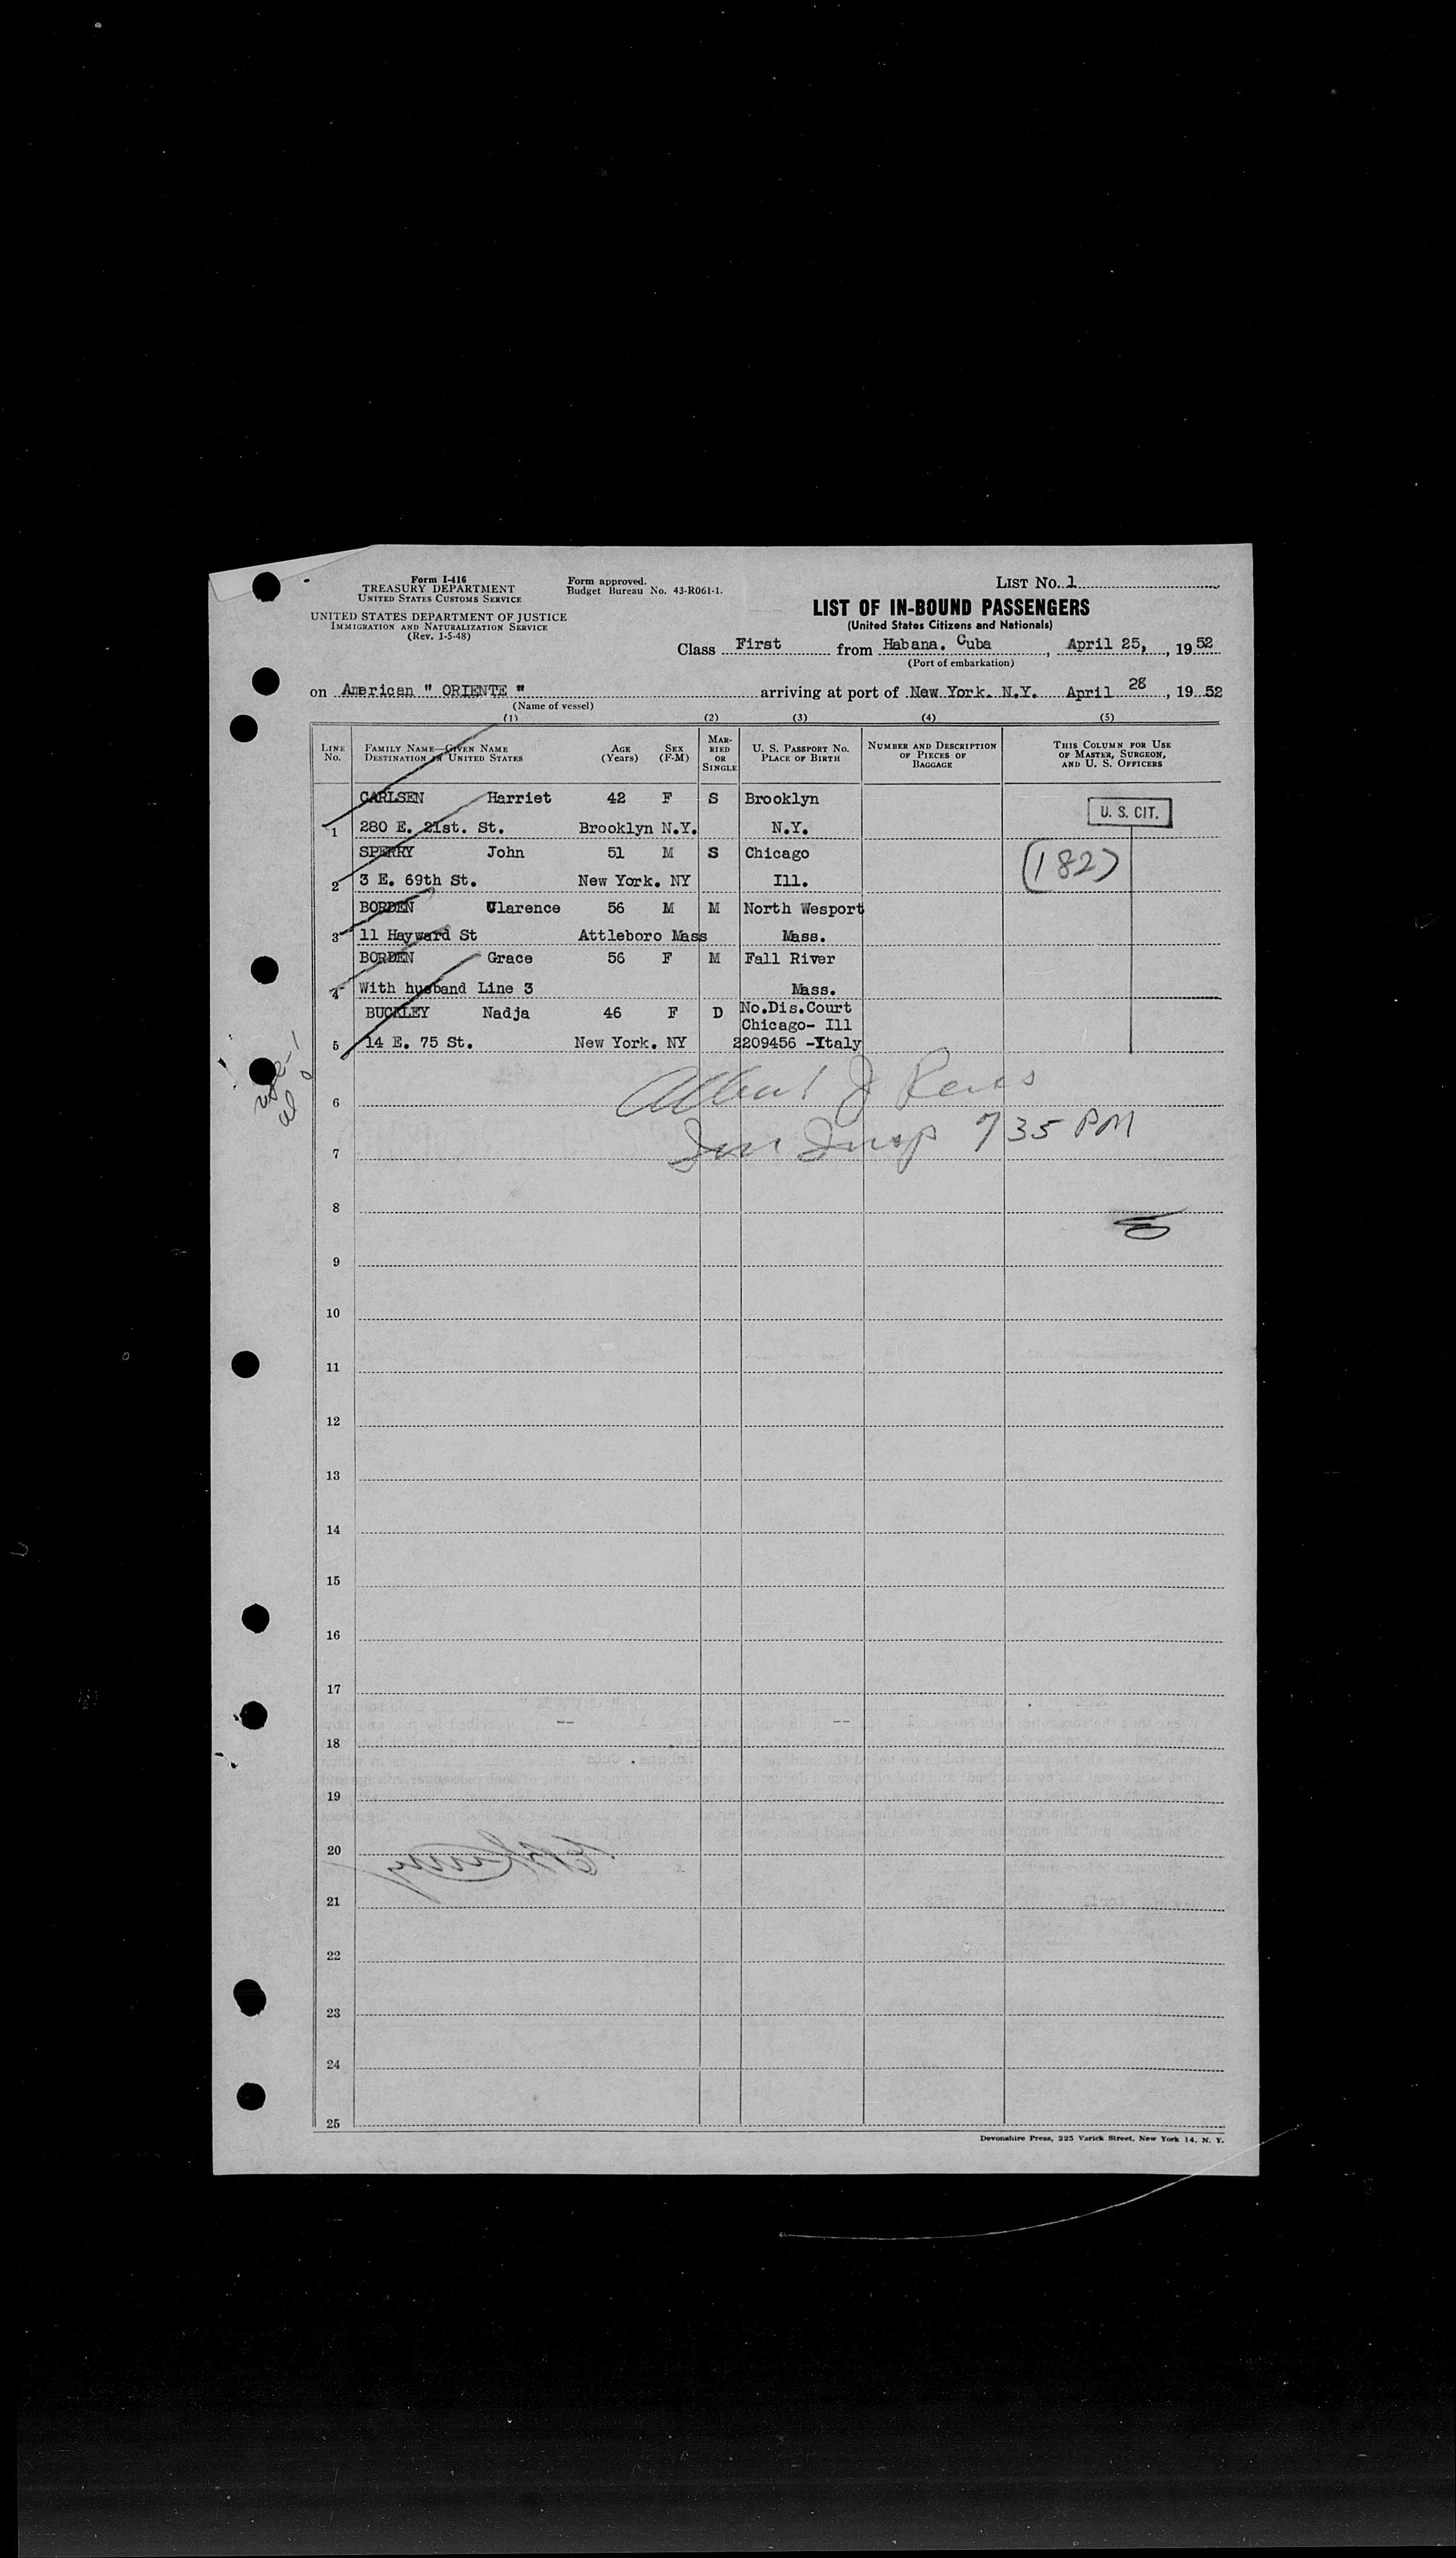 Form I-416
TREASURY DEPARTMENT
UNITED STATES CUSTOMS SERVICE
UNITED STATES DEPARTMENT OF JUSTICE
IMMIGRATION AND NATURALIZATION SERVICE
(Rev. 1-5-48)
Form approved.
Budget Bureau No. 43-R061-1.
LIST No. 1
LIST OF IN-BOUND PASSENGERS
(United States Citizens and Nationals)
Class First from Habana. Cuba, April 25, 1952
(Port of embarkation)
on American " ORIENTE " arriving at port of New York. N.Y. April 28, 1952
(Name of vessel)
(1) (2) (3) (4) (5)
LINE No. FAMILY NAME—GIVEN NAME DESTINATION IN UNITED STATES AGE (Years) SEX (F-M) MARRIED OR SINGLE U. S. PASSPORT No. PLACE OF BIRTH NUMBER AND DESCRIPTION OF PIECES OF BAGGAGE THIS COLUMN FOR USE OF MASTER, SURGEON, AND U. S. OFFICERS
CARLSEN Harriet 42 F S Brooklyn
U. S. CIT.
1 280 E. 21st. St. Brooklyn N.Y. N.Y.
SPERRY John 51 M S Chicago
(182)
2 3 E. 69th St. New York. NY Ill.
BORDEN Clarence 56 M M North Wesport
3 11 Hayward St Attleboro Mass Mass.
BORDEN Grace 56 F M Fall River
4 With husband Line 3 Mass.
BUCKLEY Nadja 46 F D No.Dis.Court
Chicago- Ill
5 14 E. 75 St. New York. NY 2209456 -Italy
Albert J
6
Imm Insp 7 35 PM
7
8
9
10
11
12
13
14
15
16
17
18
19
20
21
22
23
24
25
Devonshire Press, 225 Varick Street, New York 14, N. Y.